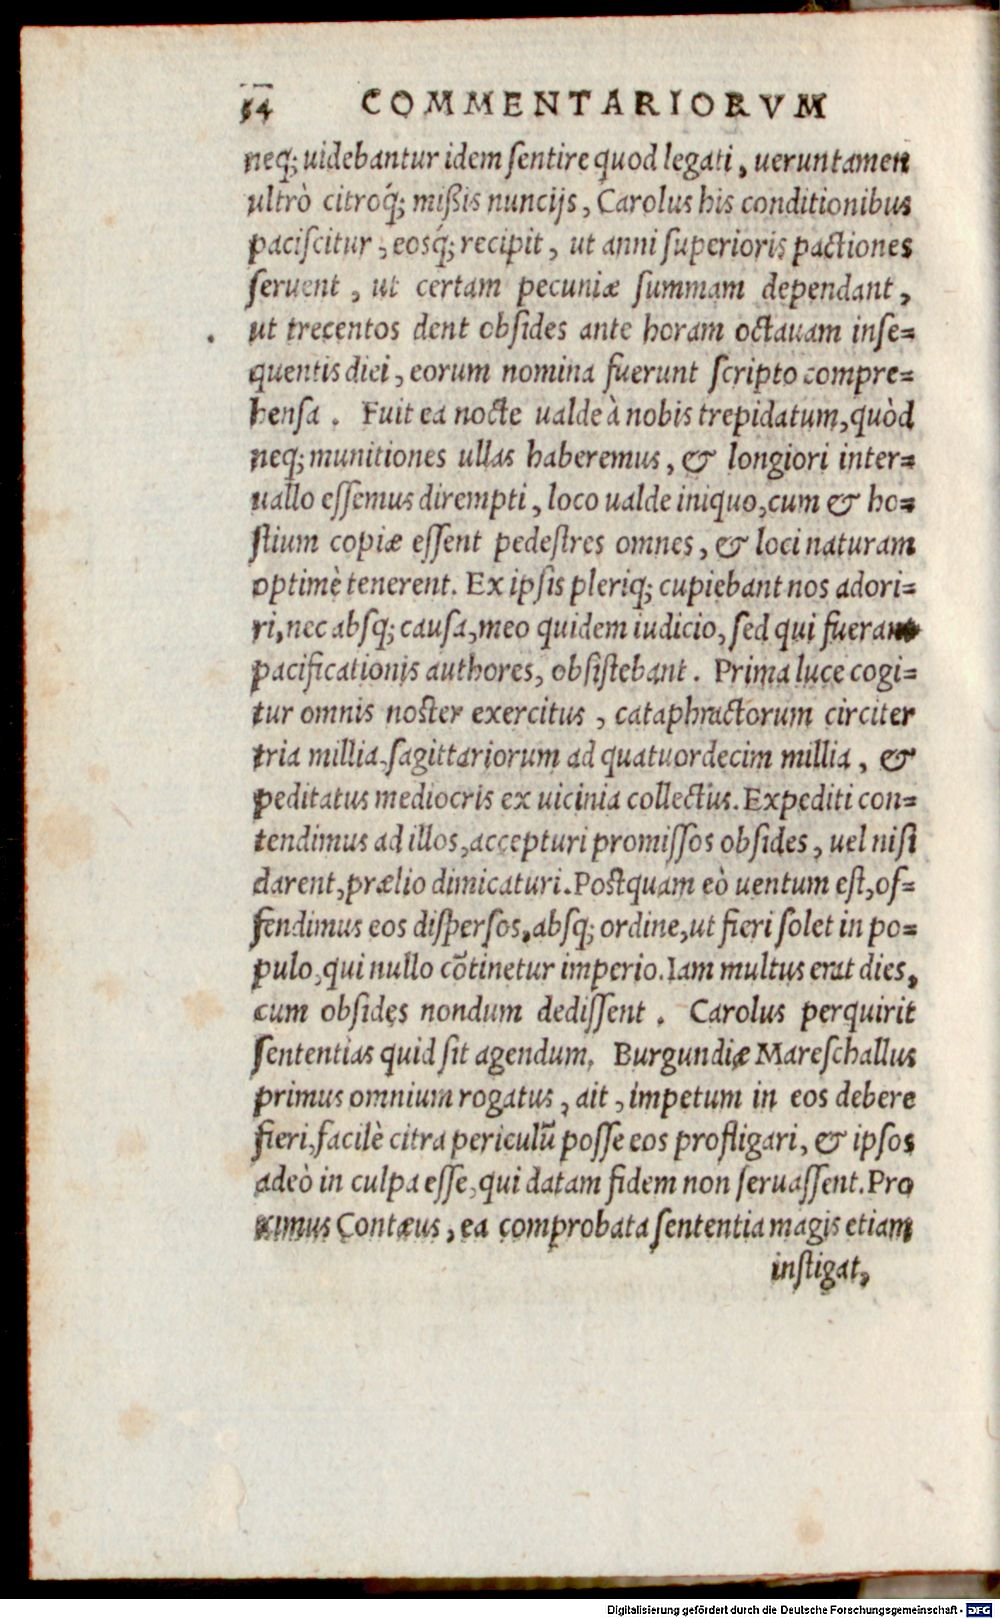 54 COMMENTARIORVM
neq; uidebantur idem sentire quod legati, ueruntamen
ultrò citroq́; mißis nuncijs, Carolus his conditionibus
paciscitur, eosq́; recipit, ut anni superioris pactiones
seruent, ut certam pecuniæ summam dependant,
ut trecentos dent obsides ante horam octauam inse=
quentis diei, eorum nomina fuerunt scripto compre=
hensa. Fuit ea nocte ualde à nobis trepidatum, quòd
neq; munitiones ullas haberemus, & longiori inter=
uallo essemus dirempti, loco ualde iniquo, cum & ho=
stium copiæ essent pedestres omnes, & loci naturam
optimè tenerent. Ex ipsis pleriq; cupiebant nos adori=
ri, nec absq; causa, meo quidem iudicio, sed qui fuerant
pacificationis authores, obsistebant. Prima luce cogi=
tur omnis noster exercitus, cataphractorum circiter
tria millia, sagittariorum ad quatuordecim millia, &
peditatus mediocris ex uicinia collectus. Expediti con=
tendimus ad illos, accepturi promissos obsides, uel nisi
darent, prælio dimicaturi. Postquam eò uentum est, of=
fendimus eos dispersos, absq; ordine, ut fieri solet in po=
pulo, qui nullo cõtinetur imperio. Iam multus erat dies,
cum obsides nondum dedissent. Carolus perquirit
sententias quid sit agendum. Burgundiæ Mareschallus
primus omnium rogatus, ait, impetum in eos debere
fieri, facilè citra periculũ posse eos profligari, & ipsos
adeò in culpa esse, qui datam fidem non seruassent. Pro
ximus Contæus, ea comprobata sententia magis etiam
instigat,
Digitalisierung gefördert durch die Deutsche Forschungsgemeinschaft - DFG